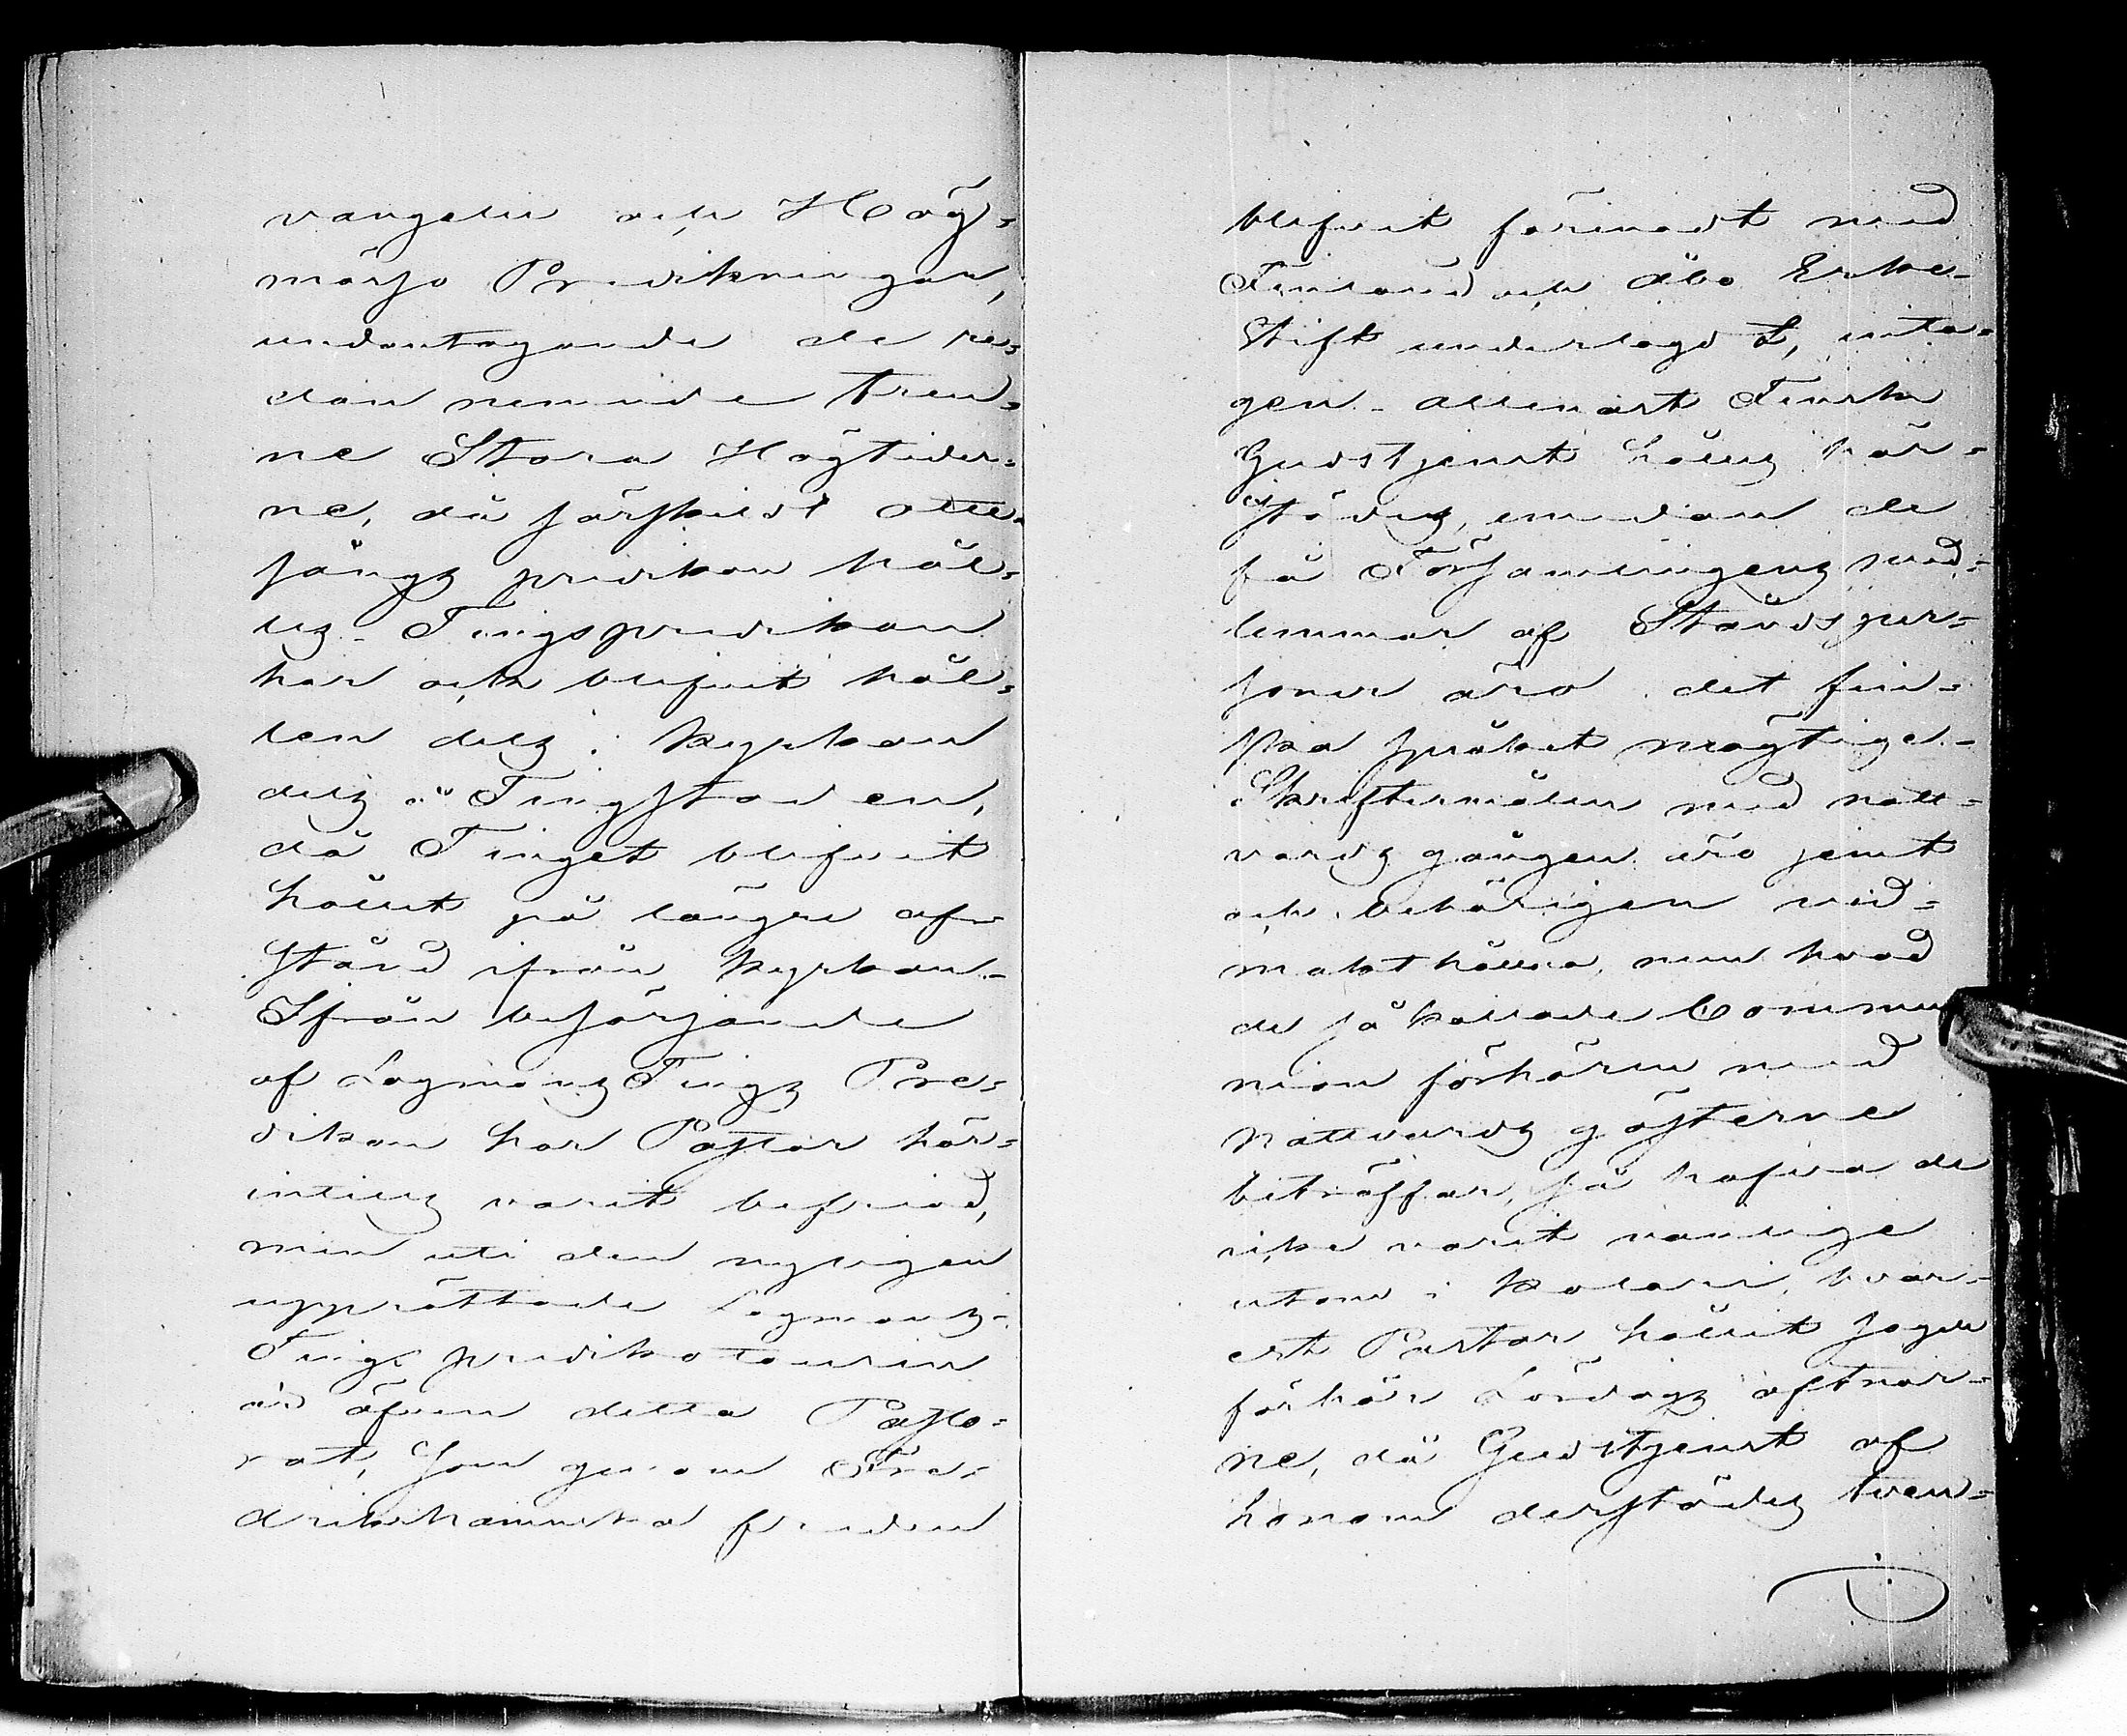 vangelii och Hög=
mässo Predikningar,
undantagande de re=
dan nemnde tren=
ne Stora Högtider=
ne, då särskildt afte
sångs predikan hål=
les. Tingspredikan
har och blifvit hål=
len dels i kyrkan
dels å Tingstaden,
då Tinget blifvit
hållit på längre af=
stånd ifrån kyrkan.
Ifrån besörjande
af Lagmans Tings Pre=
dikan har Pastor här=
intils varit befriad,
men uti den nyligen
upprättade Lagmans-
Tings prediko tourin
är äfven detta Pasto=
rat, som genom Fre=
drikshamnska freden
blifvit förenadt med
Finland och Åbo Erke-
Stift underlagdt, inta=
gen. Allenast Finsk
Gudstjenst hålles här=
städes, emedan de
få Församlingens med=
lemmar af Ståndsper=
soner äro det fin=
ska språket mägtige.
Skriftermålen med natt=
vards gången äro jemt
och behörigen vid=
makt hållna, men hvad
de så kallade Commu
nion förhören med
nattvards gästerne
beträffar, så hafva de
icke varit vanlige
utom i Kolari, hvar=
est Pastor hållit sagde
förhör Lördags aftnar=
ne, då Gudstjenst af
honom derstädes tven=